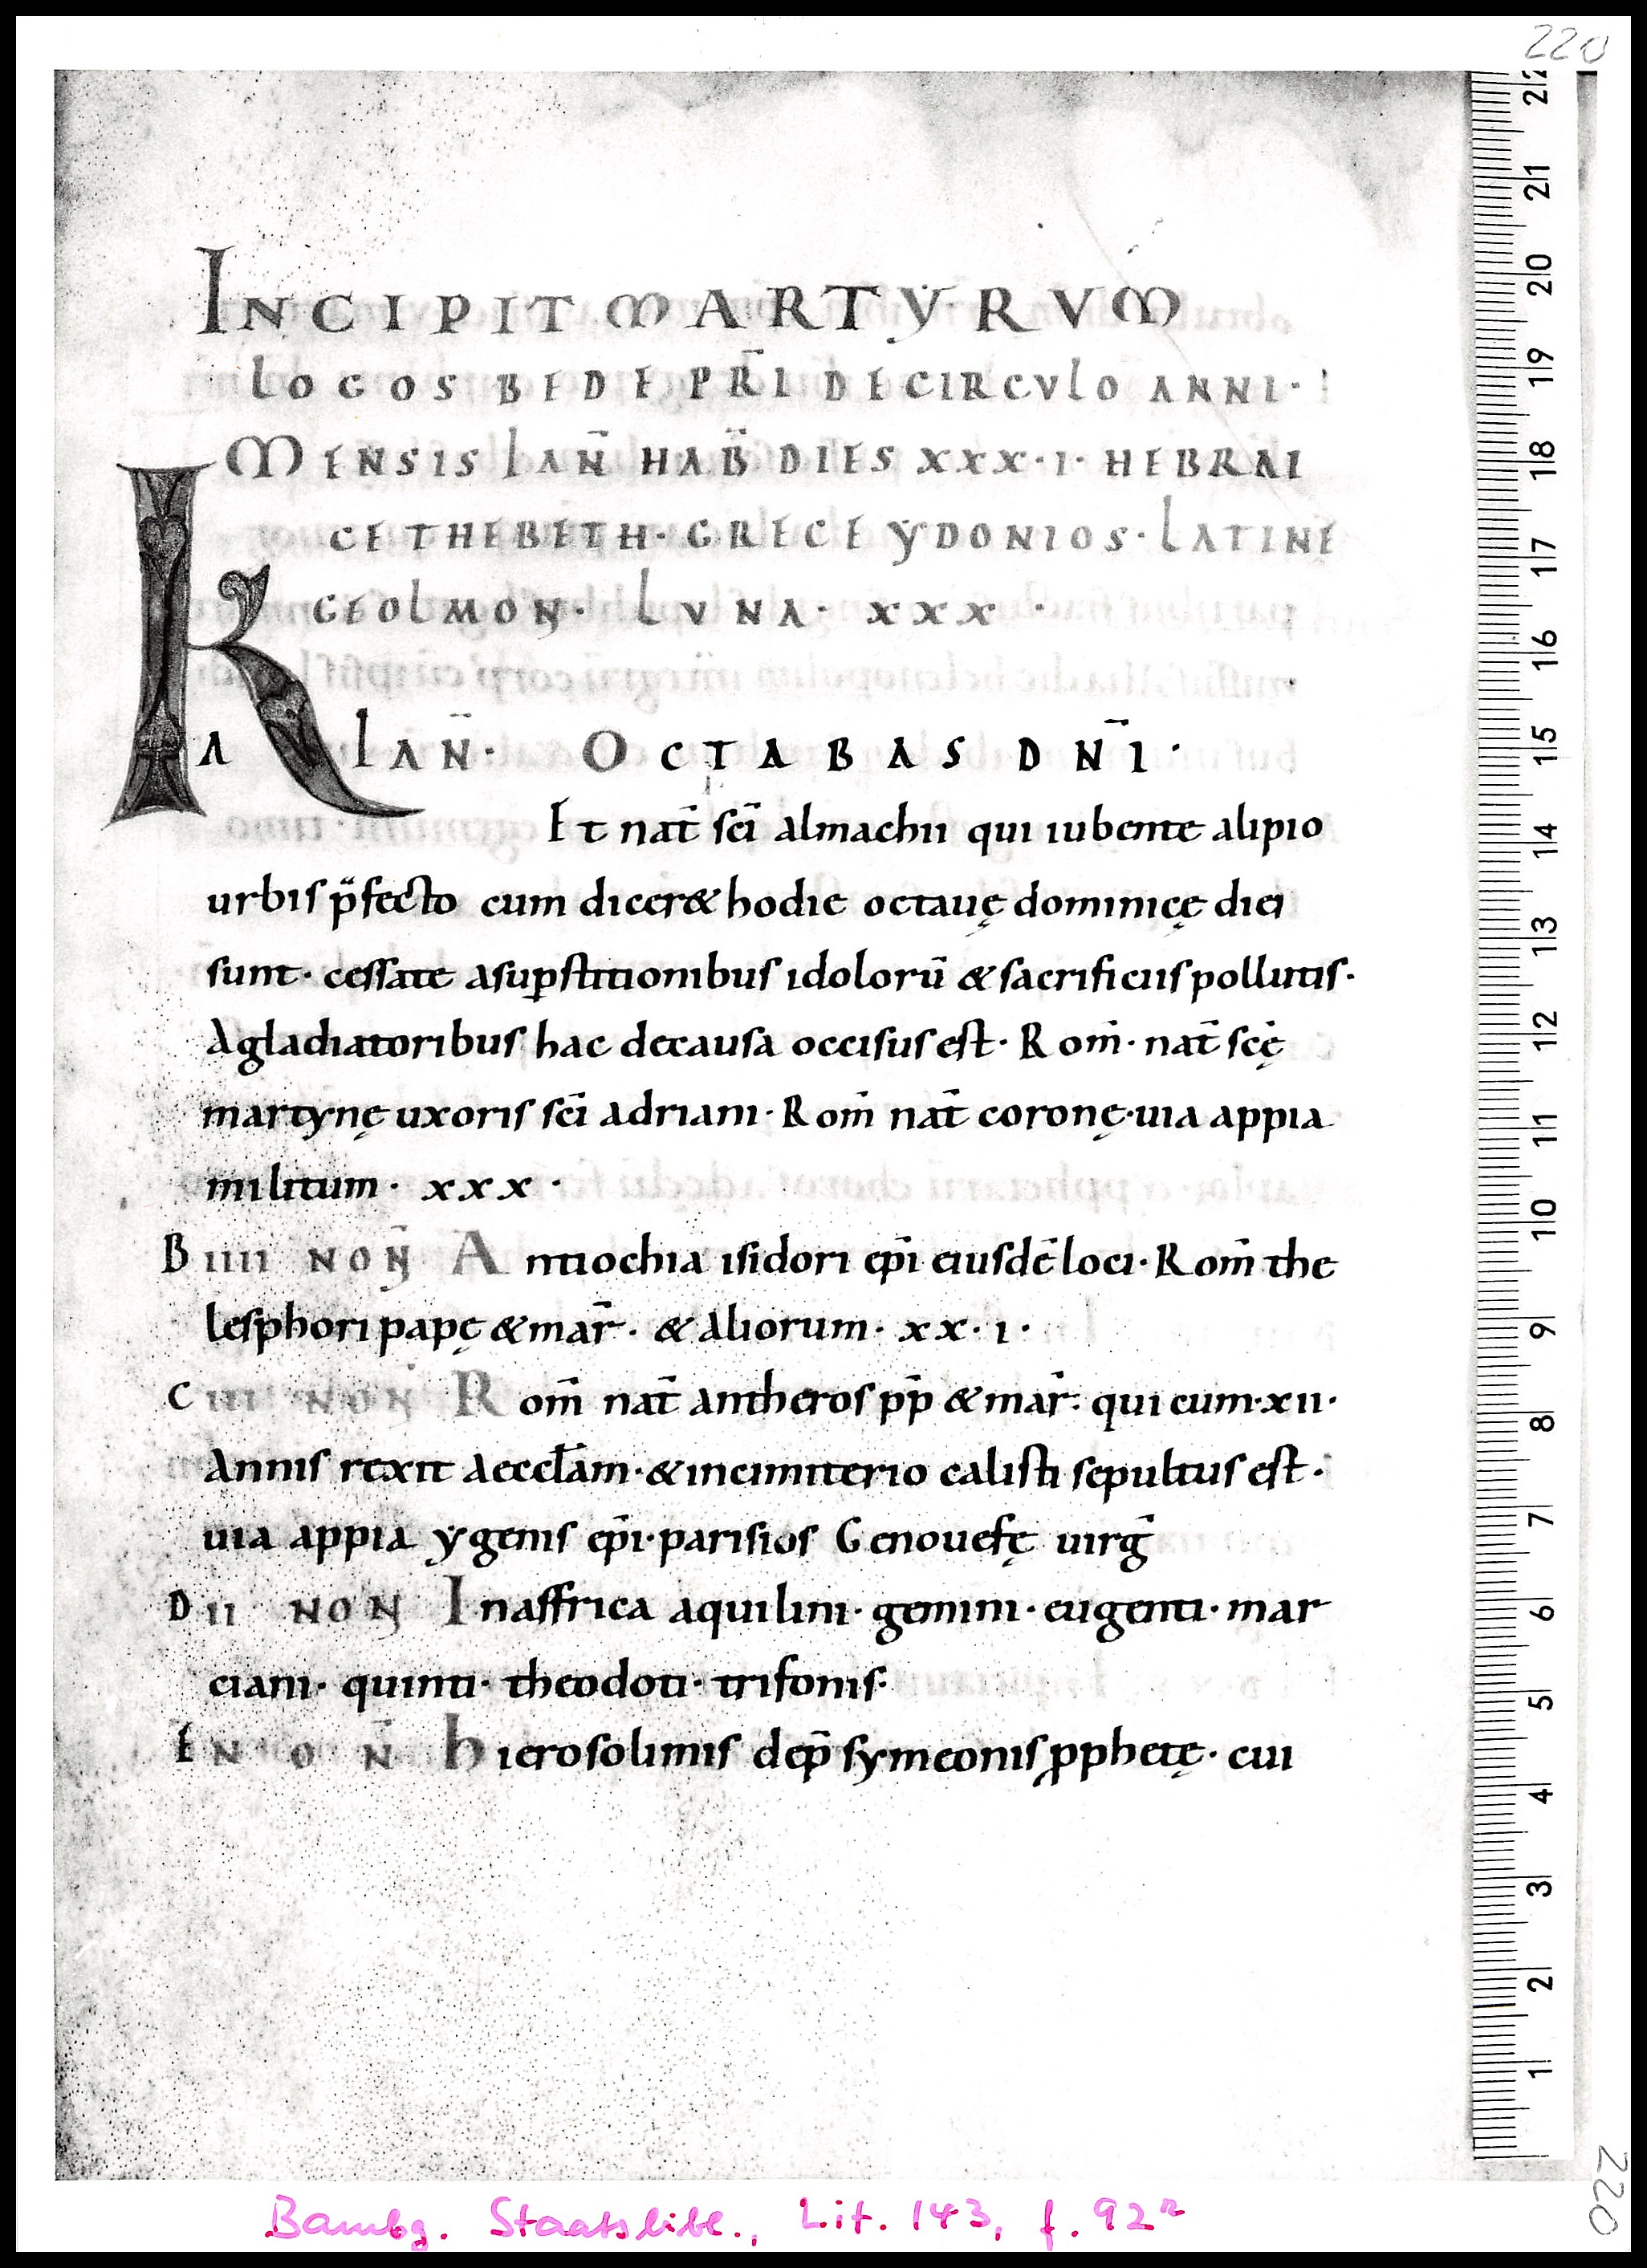 220
INCIPIT MARTYRVM
LOGOS BEDE PR̄I DE CIRCVLO ANNI·
MENSIS IAN̄ HAB̄ DIES XXX·I· HEBRAI
CE THEBETH· GRECE YDONIOS· LATINE
GEOLMON· LVNA· XXX·
K IAN̄· OCTABAS DN̄I·
A
Et nat̄ sc̄i almachii qui iubente alipio
urbis p̄fecto cum dicer& hodie octauę dominicę diei
sunt· cessate asuꝑstitionibus idolorū & sacrificiis pollutis·
Agladiatoribus hac decausa occisus est· Rom̄· nat̄ sc̄ę
martynę uxoris sc̄i adriani· Rom̄ nat̄ coronę·uia appia
militum· xxx·
B IIII NON̄ Antiochia isidori ep̄i eiusdē loci· Rom̄ the
lesphori papę & mar̄· & aliorum· xx·i·
C III NON̄ Rom̄ nat̄ antheros pp̄ & mar̄· qui cum·xii·
Annis rexit aeccl̄am·& incimiterio calisti sepultus est·
uia appia ẏgenis ep̄i·parisios Genouefę uirḡ
D II NON̄ Inaffrica aquilini· gemini· eugenti· mar
ciani· quinti· theodoti· trifonis·
E NON̄ hierosolimis dep̄ symeonis ꝓphetę· cui
Bambg. Staatsbibl., Lit. 143, f. 92r
220
22
21
20
19
18
17
16
15
14
13
12
11
10
9
8
7
6
5
4
3
2
1